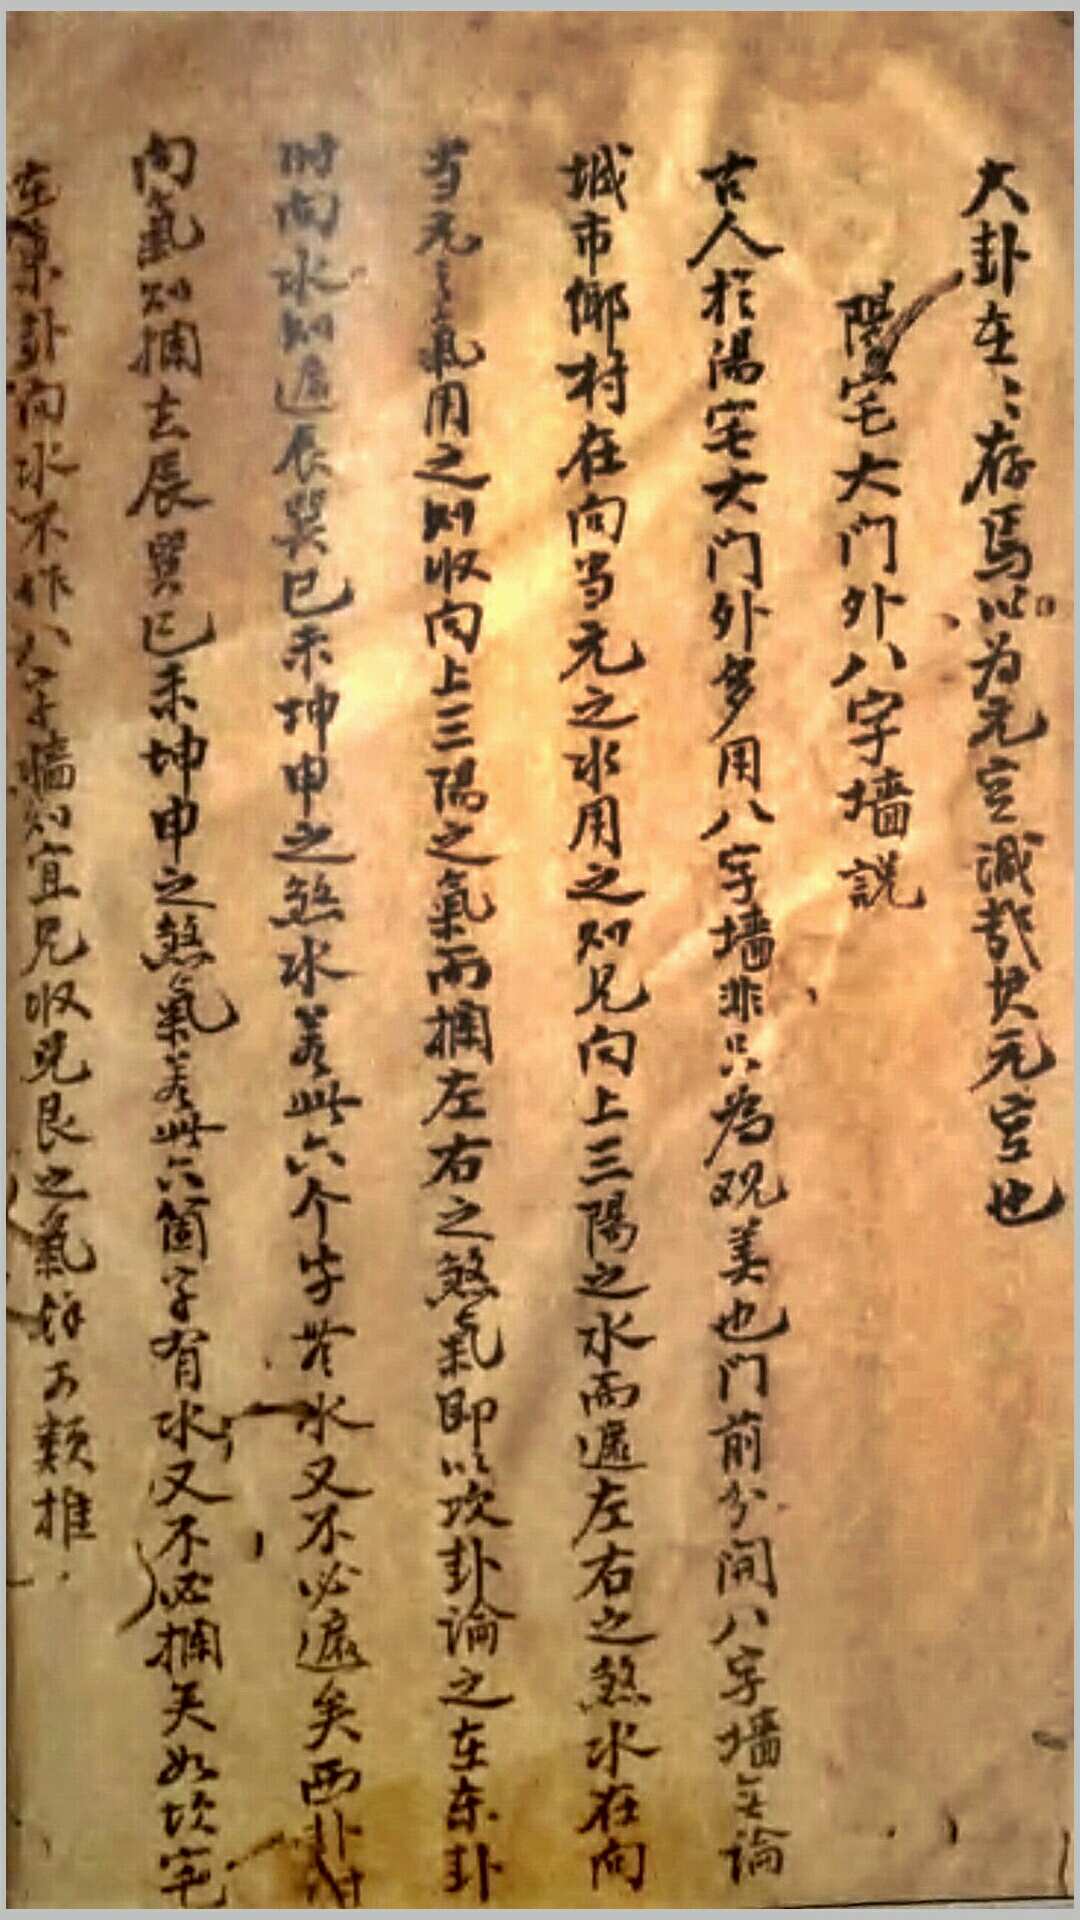 大卦在〻存焉以为元空減哉損元空也
陽宅大门外八字墙説
古人扵陽宅大门外多用八字墙非只為观美也门前分開八字墙无論
城市鄉村在向当元之水用之則見向上三陽之水而遮左右之煞水在向
当元之氣用之則收向上三陽之氣而攔左右之煞氣即以坎卦論之在东卦
时向水則遮辰巽巳未坤申之煞水若此六个字無水又不必遮矣西卦时
向氣則攔去辰巽巳未坤申之煞氣若此六箇字有水又不必攔矣如坎宅
在某卦向水不作八字墙則宜兄收兄艮之氣餘可類推